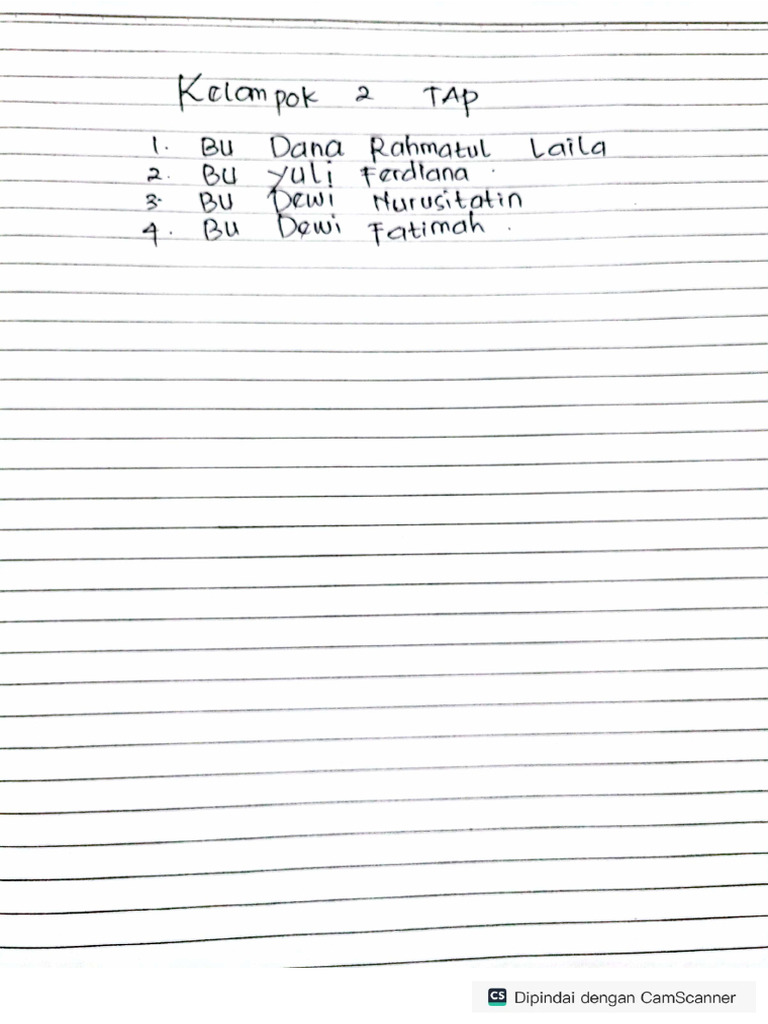 Kelompok 2 TAP
1. Bu Dana Rahmatul Laila
2. Bu Yuli Ferdiana.
3. Bu Dewi Nurusitatin
4. Bu Dewi Fatimah.
CS Dipindai dengan CamScanner